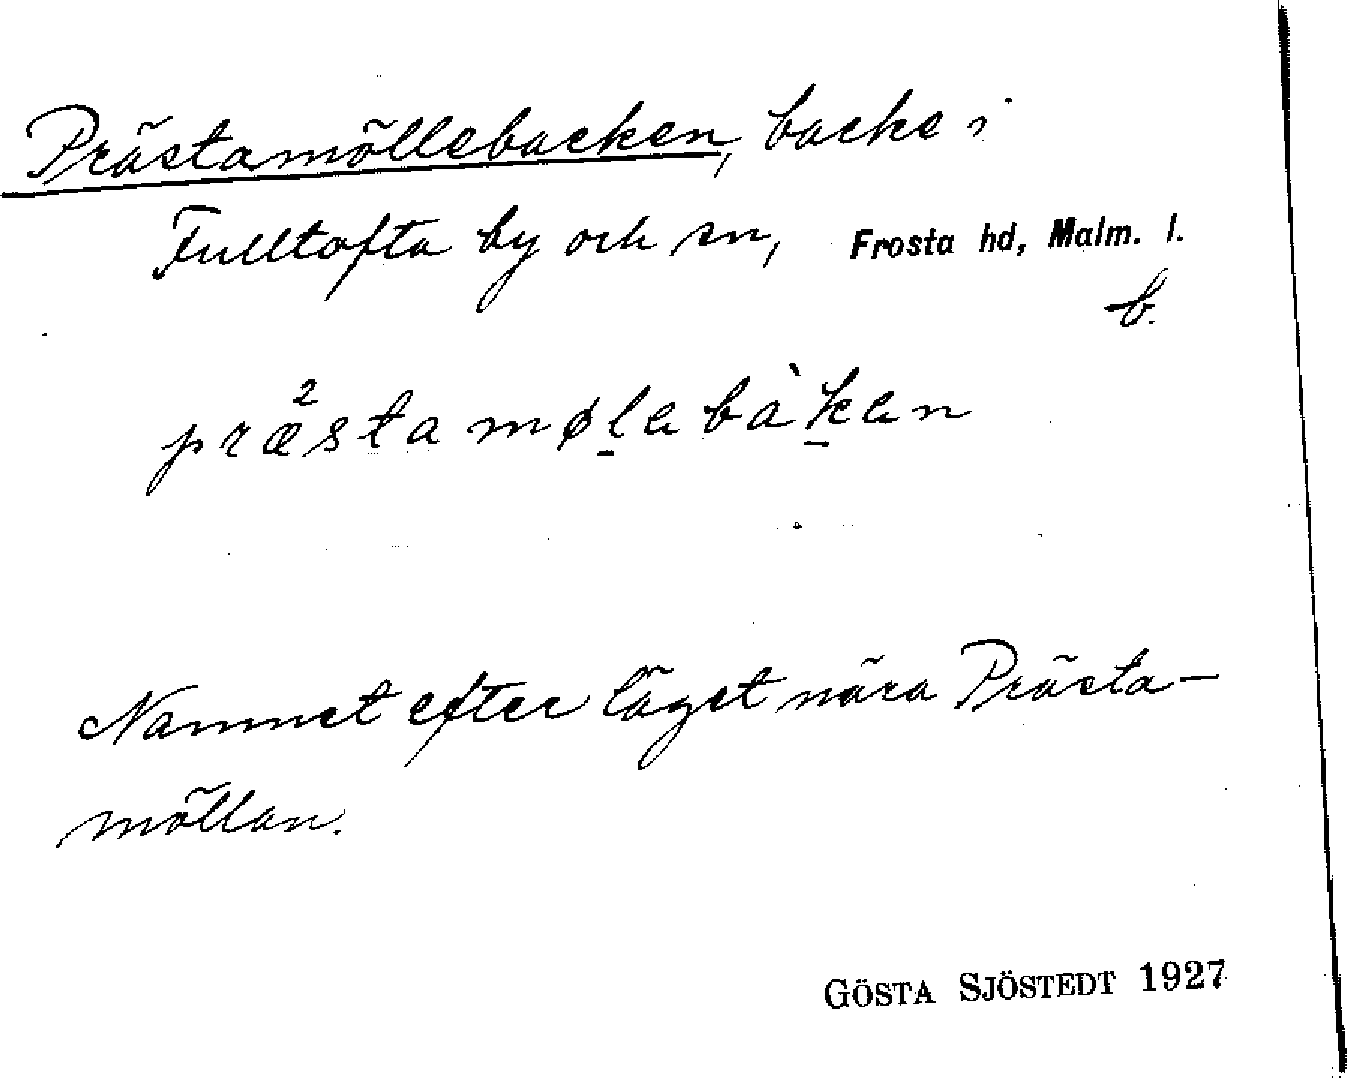 Prästamöllebacken, backe i
Fulltofta by och sn, Frosta hd, Malm. l.
b.
præ²stamøl̠abàk̠an
Namnet efter läget nära Prästa-
möllan.
GÖSTA SJÖSTEDT 1927